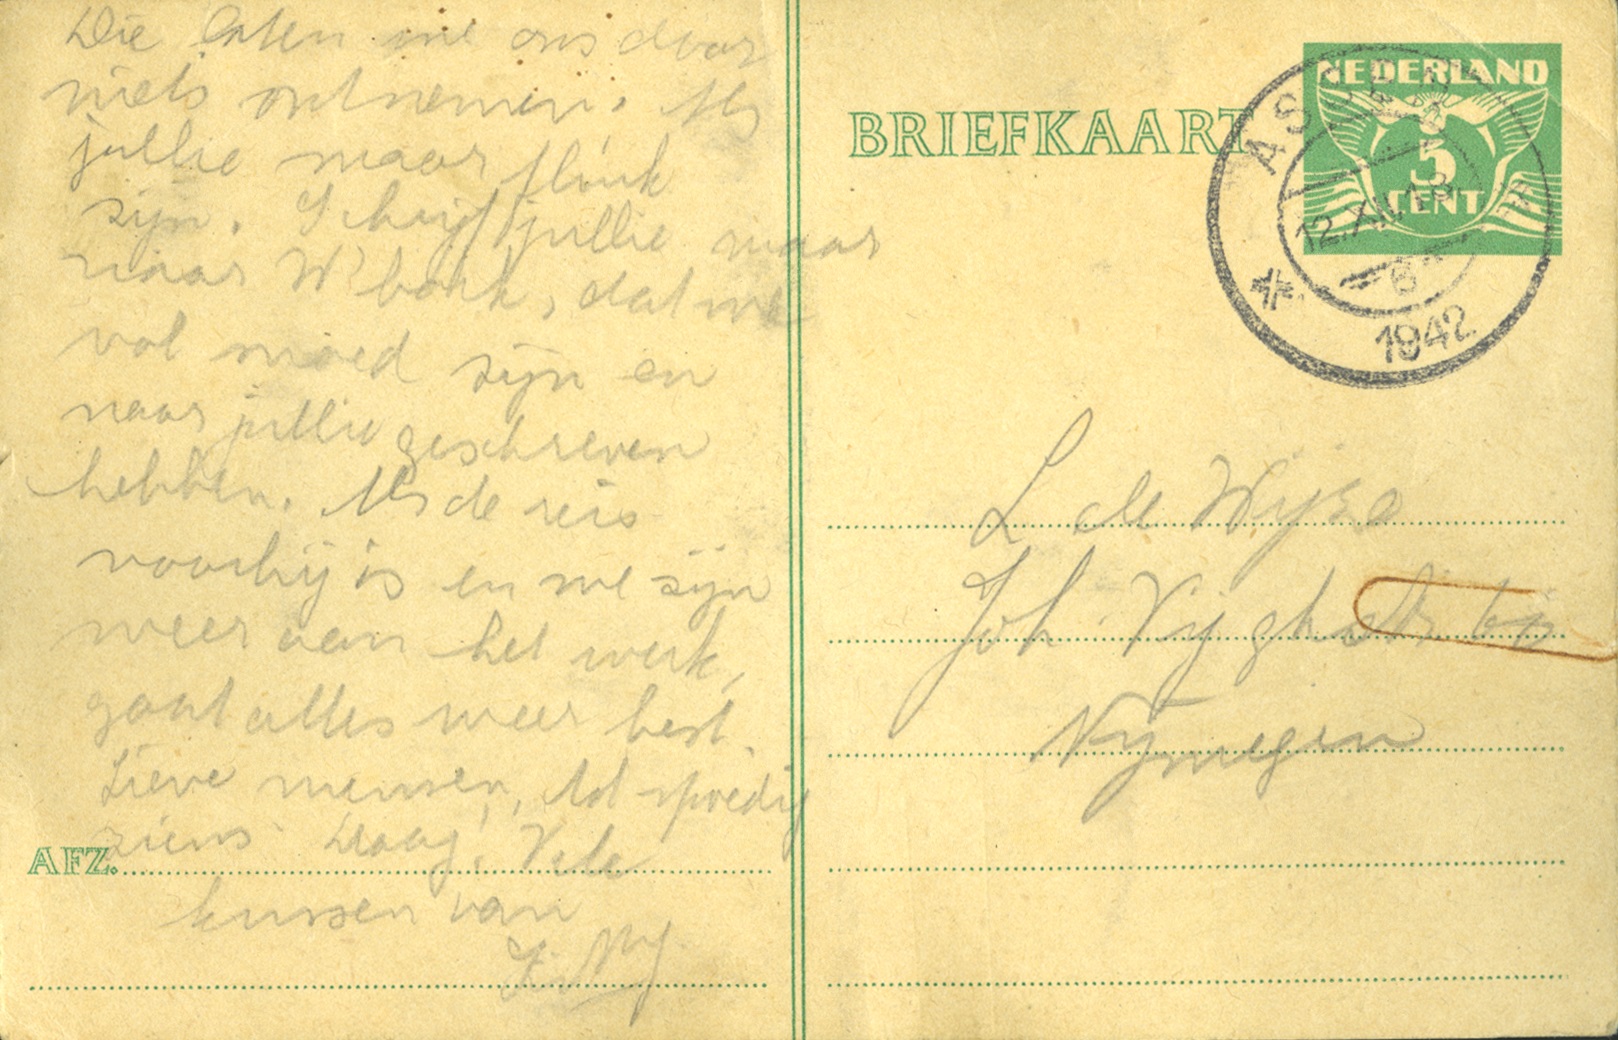 Die laten we ons door
niets ontnemen. Als
jullie maar flink
zijn. Schrijf jullie maar
naar W'bork, dat we
vol moed zijn en
naar jullie geschreven
hebben. Als de reis
voorbij is en we zijn
weer aan het werk,
gaat alles weer best.
Lieve mensen, tot spoedig
ziens. Daag! Vele
kussen van
AFZ.
BRIEFKAART
NEDERLAND
5
CENT
12.XII.18
1942
L de Wijze
Joh. Vijghstr
Nijmegen